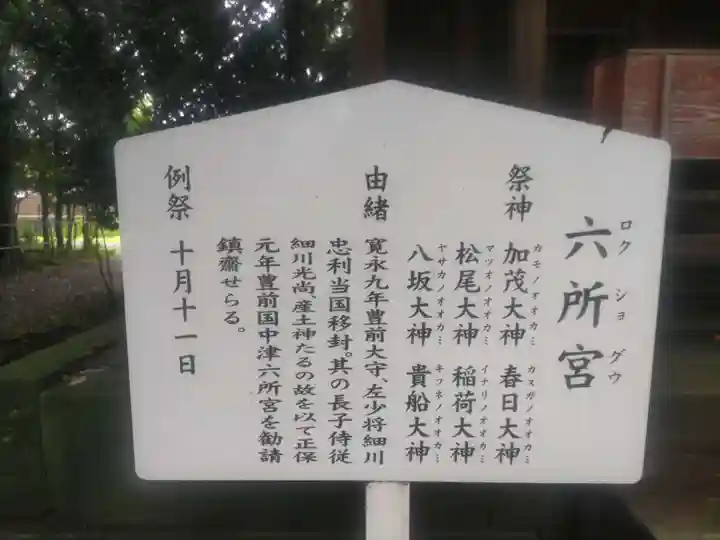 六所宮
ロクショグウ
祭神
加茂大神
カモノオオカミ
春日大神
カスガノオオカミ
松尾大神
マツオノオオカミ
稲荷大神
イナリノオオカミ
八坂大神
ヤサカノオオカミ
貴船大神
キフネノオオカミ
由緒
寛永九年豊前大守、左少将細川
忠利当国移封。其の長子侍従
細川光尚、産土神たるの故を以て正保
元年豊前国中津六所宮を勧請
鎮齋せらる。
例祭 十月十一日